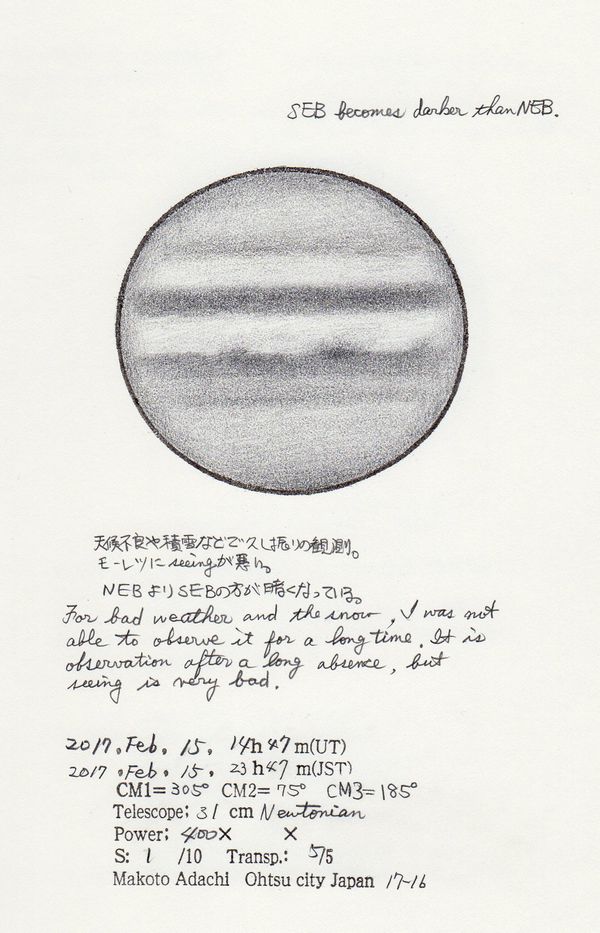 SEB becomes darker than NEB.
天候不良や積雪などで久し振りの観測。
モーレツにseeingが悪い。
NEBよりSEBの方が暗くなっている。
For bad weather and the snow, I was not
able to observe it for a long time. It is
observation after a long absence, but
seeing is very bad.
2017. Feb. 15. 14h47m(UT)
2017. Feb. 15. 23h47m(JST)
CM1=305° CM2=75° CM3=185°
Telescope; 31 cm Newtonian
Power; 400× ×
S: 1 /10 Transp.: 5/5
Makoto Adachi Ohtsu city Japan 17-16